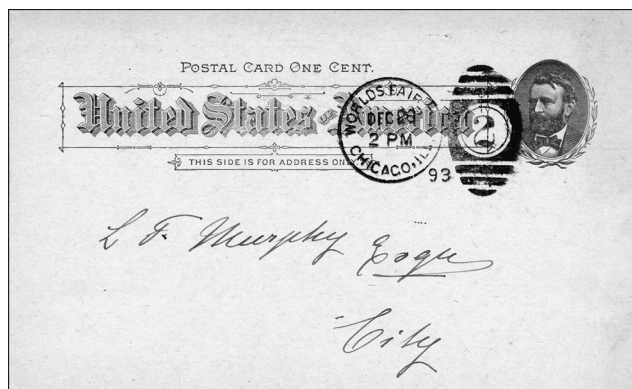 POSTAL CARD ONE CENT.
United States of America
THIS SIDE IS FOR ADDRESS ONLY
WORLD'S FAIR
DEC 28
2 PM
CHICAGO, ILL
93
2
L F. Murphy Esqr
City